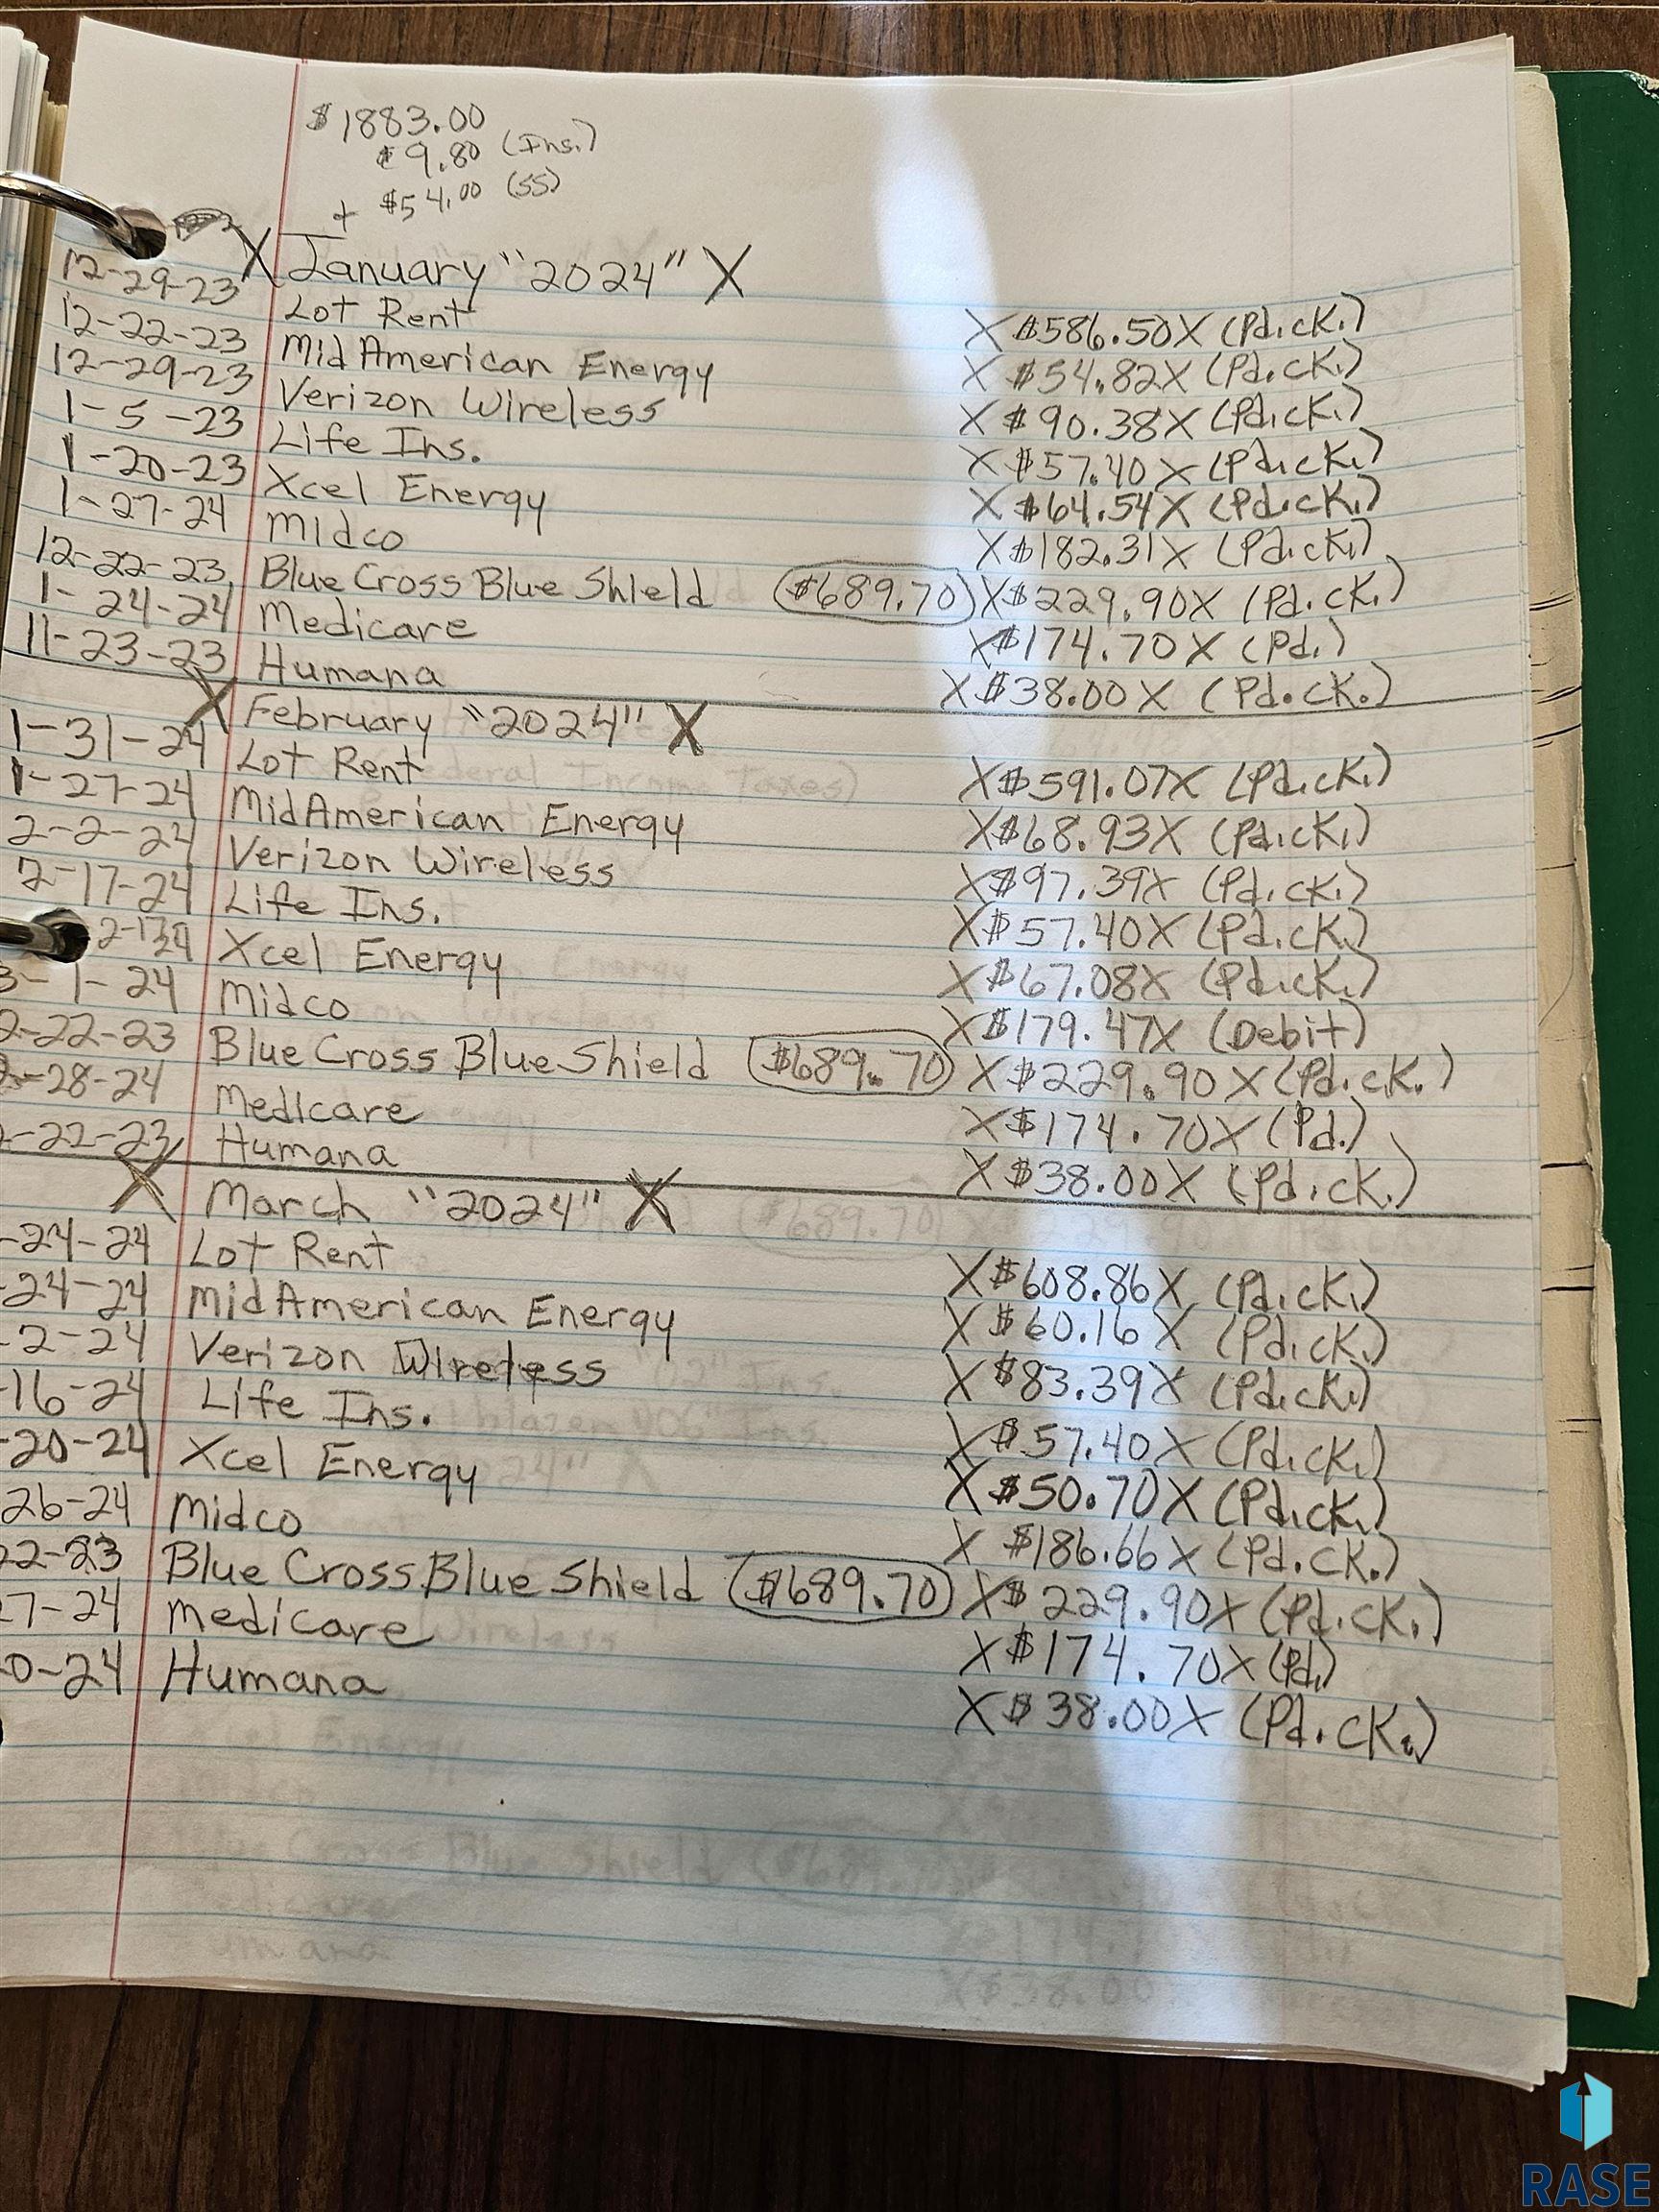 $1883.00
¢9.80 (Ins.)
+ $54.00 (SS)
X January "2024" X
12-29-23 Lot Rent X $586.50 X (Pd. ck.)
12-22-23 MidAmerican Energy X $54.82 X (Pd. ck.)
12-29-23 Verizon Wireless X $90.38 X (Pd. ck.)
1-5-23 Life Ins. X $57.40 X (Pd. ck.)
1-20-23 Xcel Energy X $64.54 X (Pd. ck.)
1-27-24 Midco X $182.31 X (Pd. ck.)
12-22-23 Blue Cross Blue Shield ($689.70) X $229.90 X (Pd. ck.)
1-24-24 Medicare X $174.70 X (Pd.)
11-23-23 Humana X $38.00 X (Pd. ck.)
X February "2024" X
1-31-24 Lot Rent X $591.07 X (Pd. ck.)
1-27-24 MidAmerican Energy X $68.93 X (Pd. ck.)
2-2-24 Verizon Wireless X $97.39 X (Pd. ck.)
2-17-24 Life Ins. X $57.40 X (Pd. ck.)
Xcel Energy X $67.08 X (Pd. ck.)
3-1-24 Midco X $179.47 X (Debit)
2-22-23 Blue Cross Blue Shield ($689.70) X $229.90 X (Pd. ck.)
-28-24 Medicare X $174.70 X (Pd.)
-22-23 Humana X $38.00 X (Pd. ck.)
X March "2024" X
-24-24 Lot Rent X $608.86 X (Pd. ck.)
-24-24 MidAmerican Energy X $60.16 X (Pd. ck.)
-2-24 Verizon Wireless X $83.39 X (Pd. ck.)
-16-24 Life Ins. X $57.40 X (Pd. ck.)
-20-24 Xcel Energy X $50.70 X (Pd. ck.)
26-24 Midco X $186.66 X (Pd. ck.)
22-23 Blue Cross Blue Shield ($689.70) X $229.90 X (Pd. ck.)
27-24 Medicare X $174.70 X (Pd.)
0-24 Humana X $38.00 X (Pd. ck.)
RASE